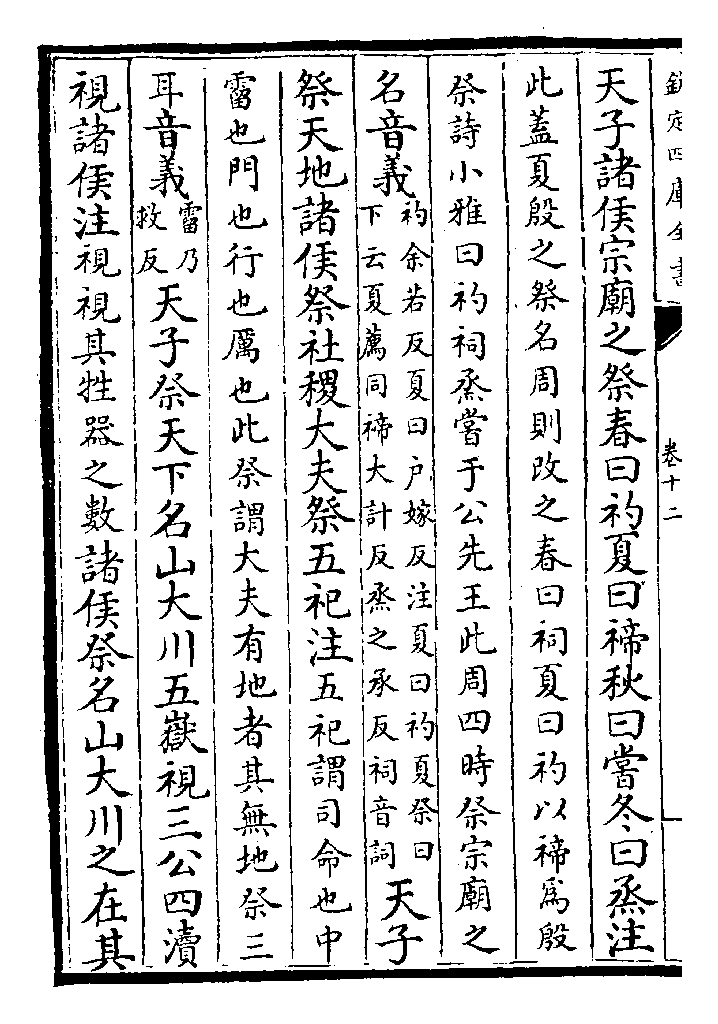 欽定四庫全書
卷十二
天子諸侯宗廟之祭春曰礿夏曰禘秋曰嘗冬曰烝注
此蓋夏殷之祭名周則改之春曰祠夏曰礿以禘為殷
祭詩小雅曰礿祠烝嘗于公先王此周四時祭宗廟之
名音義
礿余若反夏曰戸嫁反注夏曰礿夏祭曰
下云夏薦同禘大計反烝之承反祠音詞
天子
祭天地諸侯祭社稷大夫祭五祀注五祀謂司命也中
霤也門也行也厲也此祭謂大夫有地者其無地祭三
耳音義
霤乃
救反
天子祭天下名山大川五嶽視三公四瀆
視諸侯注視視其牲器之數諸侯祭名山大川之在其